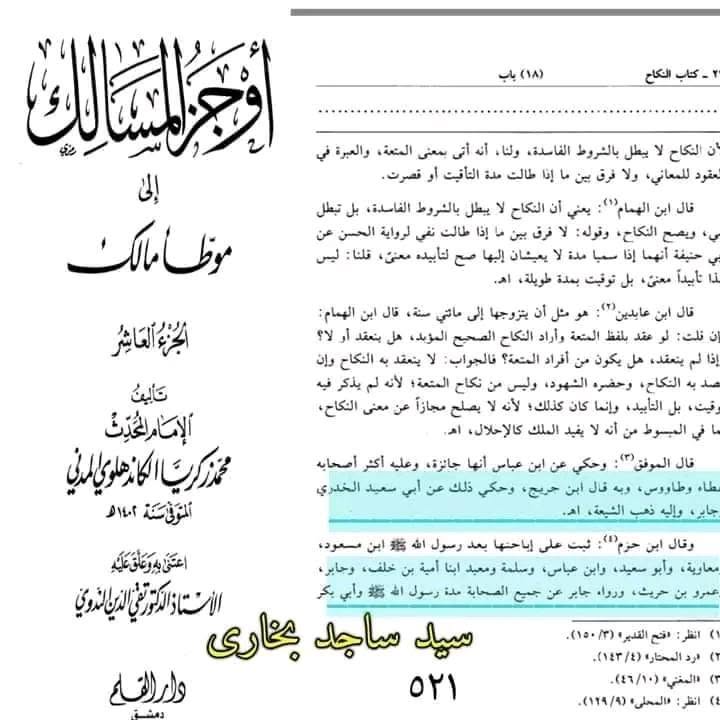 أوجز المسالك
إلى
موطأ مالك
الجزء العاشر
تأليف
الإمام المحدث
محمد زكريا الكاندهلوي المدني
المتوفى سنة ١٤٠٢هـ
اعتنى به وعلق عليه
الأستاذ الدكتور تقي الدين الندوي
دار القلم
دمشق
ـ كتاب النكاح (١٨) باب
لأن النكاح لا يبطل بالشروط الفاسدة، ولنا، أنه أتى بمعنى المتعة، والعبرة في
لعقود للمعاني، ولا فرق بين ما إذا طالت مدة التأقيت أو قصرت.
قال ابن الهمام(١): يعني أن النكاح لا يبطل بالشروط الفاسدة، بل تبطل
ـي، ويصح النكاح، وقوله: لا فرق بين ما إذا طالت نفي لرواية الحسن عن
ـي حنيفة أنهما إذا سميا مدة لا يعيشان إليها صح لتأبيده معنىً، قلنا: ليس
ـذا تأبيداً معنىً، بل توقيت بمدة طويلة، اهـ.
قال ابن عابدين(٢): هو مثل أن يتزوجها إلى مائتي سنة، قال ابن الهمام:
إن قلت: لو عقد بلفظ المتعة وأراد النكاح الصحيح المؤبد، هل ينعقد أو لا؟
إذا لم ينعقد، هل يكون من أفراد المتعة؟ فالجواب: لا ينعقد به النكاح وإن
صد به النكاح، وحضره الشهود، وليس من نكاح المتعة؛ لأنه لم يذكر فيه
وقيت، بل التأبيد، وإنما كان كذلك؛ لأنه لا يصلح مجازاً عن معنى النكاح،
ـما في المبسوط من أنه لا يفيد الملك كالإحلال، اهـ.
قال الموفق(٣): وحكي عن ابن عباس أنها جائزة، وعليه أكثر أصحابه
عطاء وطاووس، وبه قال ابن جريج، وحكي ذلك عن أبي سعيد الخدري
وجابر، وإليه ذهب الشيعة، اهـ.
وقال ابن حزم(٤): ثبت على إباحتها بعد رسول الله ﷺ ابن مسعود،
ومعاوية، وأبو سعيد، وابن عباس، وسلمة ومعبد ابنا أمية بن خلف، وجابر،
وعمرو بن حريث، ورواه جابر عن جميع الصحابة مدة رسول الله ﷺ وأبي بكر
١) انظر: «فتح القدير» (٣/ ١٥٠).
٢) «رد المحتار» (٤/ ١٤٣).
٣) «المغني» (١٠/ ٤٦).
٤) انظر: «المحلى» (٩/ ١٢٩).
سید ساجد بخاری
٥٢١